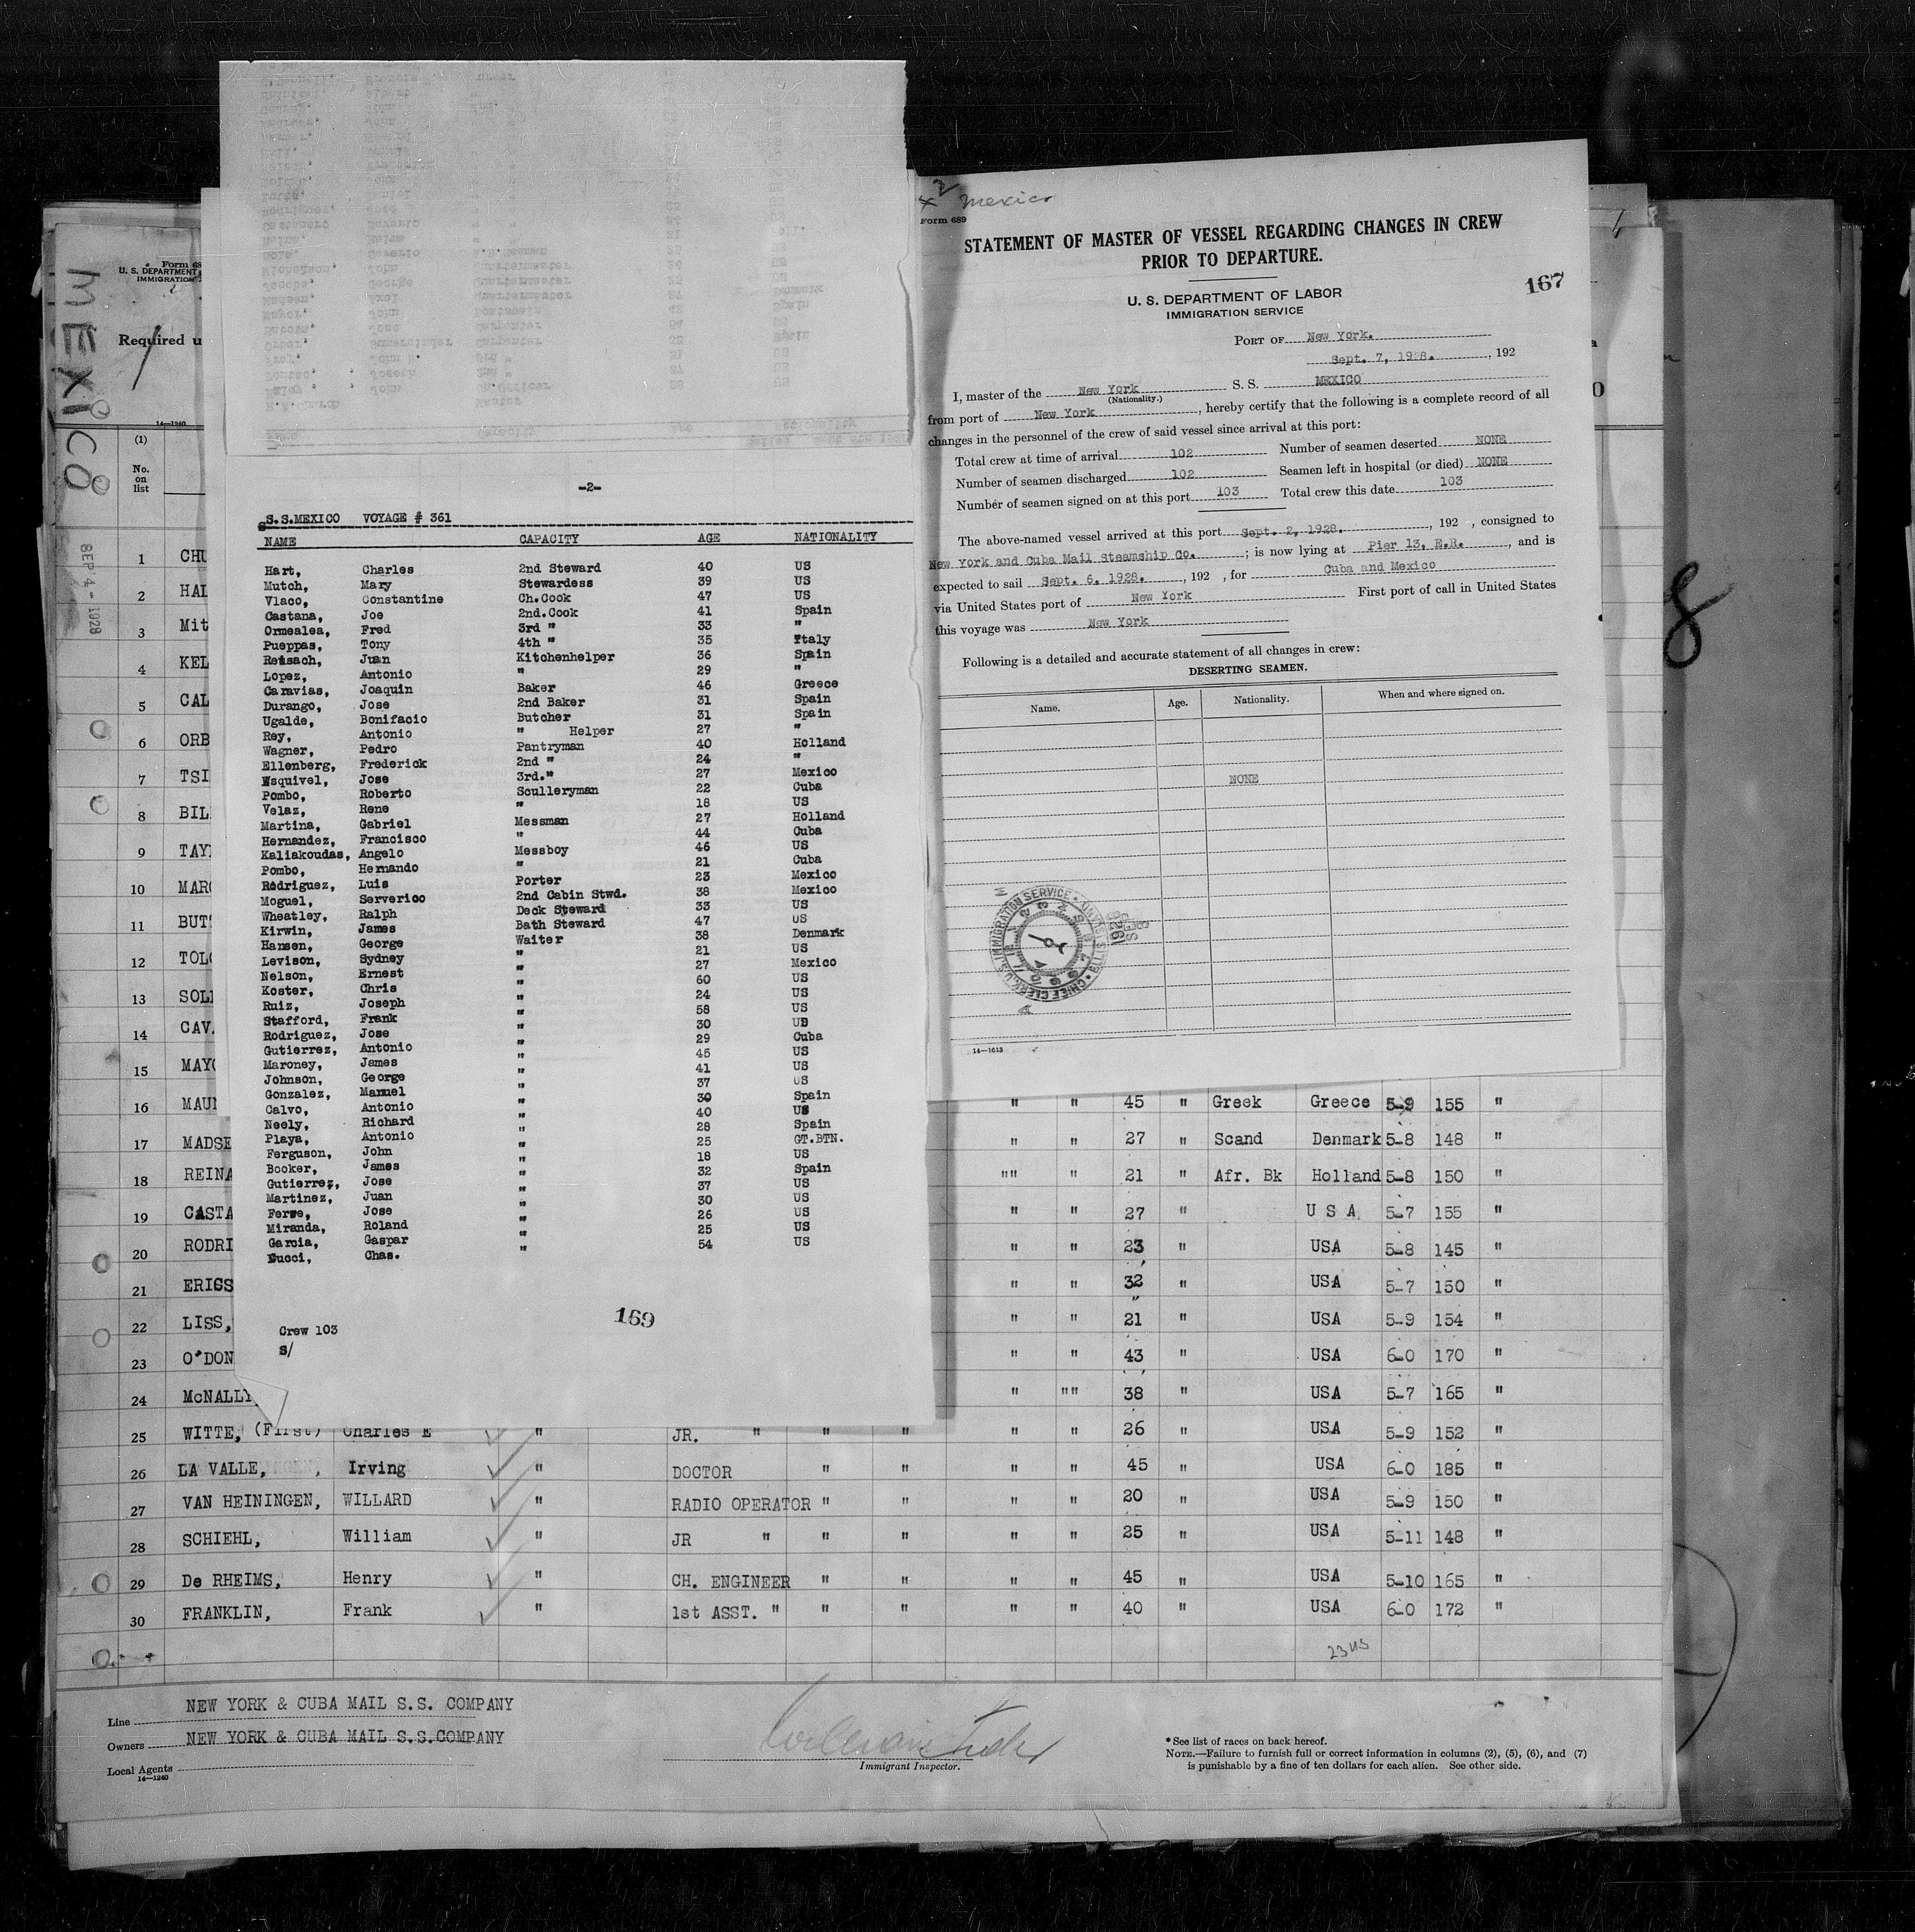 MEXICO
SEP 4 - 1928
U. S. DEPARTMENT
IMMIGRATION
Required u
14—1240
(1)
No. on list
1 CHU
2 HAL
3 Mit
4 KEL
5 CAL
6 ORB
7 TSI
8 BIL
9 TAY
10 MARC
11 BUT
12 TOLO
13 SOL
14 CAV
15 MAYO
16 MAU
17 MADSE
18 REINA
19 CASTA
20 RODRI
21 ERICS
22 LISS,
23 O'DON
24 McNALLY
-2-
S.S.MEXICO VOYAGE # 361
NAME CAPACITY AGE NATIONALITY
Hart, Charles 2nd Steward 40 US
Mutch, Mary Stewardess 39 US
Vlaco, Constantine Ch.Cook 47 US
Castana, Joe 2nd.Cook 41 Spain
Ormealea, Fred 3rd " 33 "
Pueppas, Tony 4th " 35 Italy
Reisach, Juan Kitchenhelper 36 Spain
Lopez, Antonio " 29 "
Caravias, Joaquin Baker 46 Greece
Durango, Jose 2nd Baker 31 Spain
Ugalde, Bonifacio Butcher 31 Spain
Rey, Antonio " Helper 27 "
Wagner, Pedro Pantryman 40 Holland
Ellenberg, Frederick 2nd " 24 "
Esquivel, Jose 3rd." 27 Mexico
Pombo, Roberto Sculleryman 22 Cuba
Velaz, Rene " 18 US
Martina, Gabriel Messman 27 Holland
Hernandez, Francisco " 44 Cuba
Kaliakoudas, Angelo Messboy 46 US
Pombo, Hernando " 21 Cuba
Rodriguez, Luis Porter 23 Mexico
Moguel, Serverico 2nd Cabin Stwd. 38 Mexico
Wheatley, Ralph Deck Steward 33 US
Kirwin, James Bath Steward 47 US
Hansen, George Waiter 38 Denmark
Levison, Sydney " 21 US
Nelson, Ernest " 27 Mexico
Koster, Chris " 60 US
Ruiz, Joseph " 24 US
Stafford, Frank " 58 US
Rodriguez, Jose " 30 US
Gutierrez, Antonio " 29 Cuba
Maroney, James " 45 US
Johnson, George " 41 US
Gonzalez, Manuel " 37 US
Calvo, Antonio " 30 Spain
Neely, Richard " 40 US
Playa, Antonio " 28 Spain
Ferguson, John " 25 GT.BTN.
Booker, James " 18 US
Gutierrez, Jose " 32 Spain
Martinez, Juan " 37 US
Ferre, Jose " 30 US
Miranda, Roland " 26 US
Garcia, Gaspar " 25 US
Nucci, Chas. " 54 US
Crew 103
S/
169
2
x Mexico
Form 689
STATEMENT OF MASTER OF VESSEL REGARDING CHANGES IN CREW
PRIOR TO DEPARTURE.
167
U. S. DEPARTMENT OF LABOR
IMMIGRATION SERVICE
PORT OF New York.
Sept. 7, 1928. , 192
I, master of the New York S. S. MEXICO
(Nationality.)
from port of New York, hereby certify that the following is a complete record of all
changes in the personnel of the crew of said vessel since arrival at this port:
Total crew at time of arrival 102 Number of seamen deserted NONE
Number of seamen discharged 102 Seamen left in hospital (or died) NONE
Number of seamen signed on at this port 103 Total crew this date 103
The above-named vessel arrived at this port Sept. 2, 1928. , 192 , consigned to
New York and Cuba Mail Steamship Co. ; is now lying at Pier 13, E.R. , and is
expected to sail Sept. 6, 1928. , 192 , for Cuba and Mexico
via United States port of New York First port of call in United States
this voyage was New York
Following is a detailed and accurate statement of all changes in crew:
DESERTING SEAMEN.
Name. Age. Nationality. When and where signed on.
NONE
CHIEF CLERK U.S. IMMIGRATION SERVICE
14—1613
8
" " 45 " Greek Greece 5-9 155 "
" " 27 " Scand Denmark 5-8 148 "
"" " 21 " Afr. Bk Holland 5-8 150 "
" " 27 " U S A 5-7 155 "
" " 23 " USA 5-8 145 "
" " 32 " USA 5-7 150 "
" " 21 " USA 5-9 154 "
" " 43 " USA 6-0 170 "
" "" 38 " USA 5-7 165 "
25 WITTE, (First) Charles E " JR. " " " " " 26 " USA 5-9 152 "
26 LA VALLE, Irving " DOCTOR " " " " 45 " USA 6-0 185 "
27 VAN HEININGEN, WILLARD " RADIO OPERATOR " " " " 20 " USA 5-9 150 "
28 SCHIEHL, William " JR " " " " " 25 " USA 5-11 148 "
29 De RHEIMS, Henry " CH. ENGINEER " " " " 45 " USA 5-10 165 "
30 FRANKLIN, Frank " 1st ASST. " " " " " 40 " USA 6-0 172 "
23 US
Line NEW YORK & CUBA MAIL S.S. COMPANY
Owners NEW YORK & CUBA MAIL S.S.COMPANY
Local Agents
14—1240
Immigrant Inspector.
* See list of races on back hereof.
NOTE.—Failure to furnish full or correct information in columns (2), (5), (6), and (7)
is punishable by a fine of ten dollars for each alien. See other side.